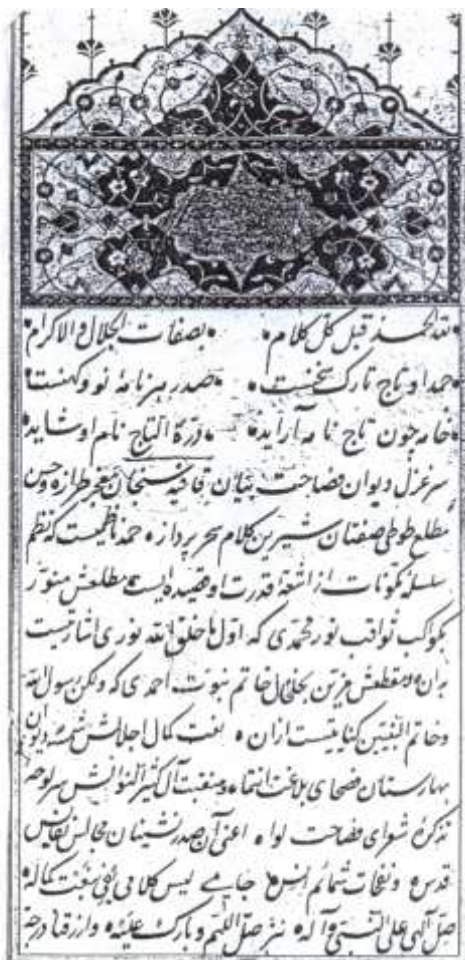 لله الحمد قبل کل کلام • بصفات الجلال والاکرام
حمد او تاج تارک سخنست • صدر هر نامهٔ نو و کهنست
خامه چون تاج نامه آراید • درة التاج نام او شاید
سر غزل دیوان فصاحت بنیان قافیه سنجان مغز طرازه و حسن
مطلع طوطی صفتان شیرین کلام سحر پردازه حمد ناظمیست که نظم
سلسله مکونات از اشعهٔ قدرت او قصیده ایست مطلعش منور
بکوکب ثواقب نور محمدی که اول ما خلق الله نوری اشارتیست
بدان و مقطعش مزین بحلی خاتم نبوت احمدی که ولکن رسول الله
وخاتم النبیین کنایتیست ازان • نعت کمال اجلالش شمسهٔ دیوان
بهارستان فصحای بلاغت انتما • و منقبت آل کثیر النوالش سر لوح
تذکرهٔ شعرای فصاحت لوا • اعنی آن صدر نشینان مجالس نفایس
قدس و نفحات شمائم انس جامی لیس کلامی یفی بنعت کماله
صل الهی علی النبی و آله • نیز صل اللهم وبارک علیه وارزقنا درجة